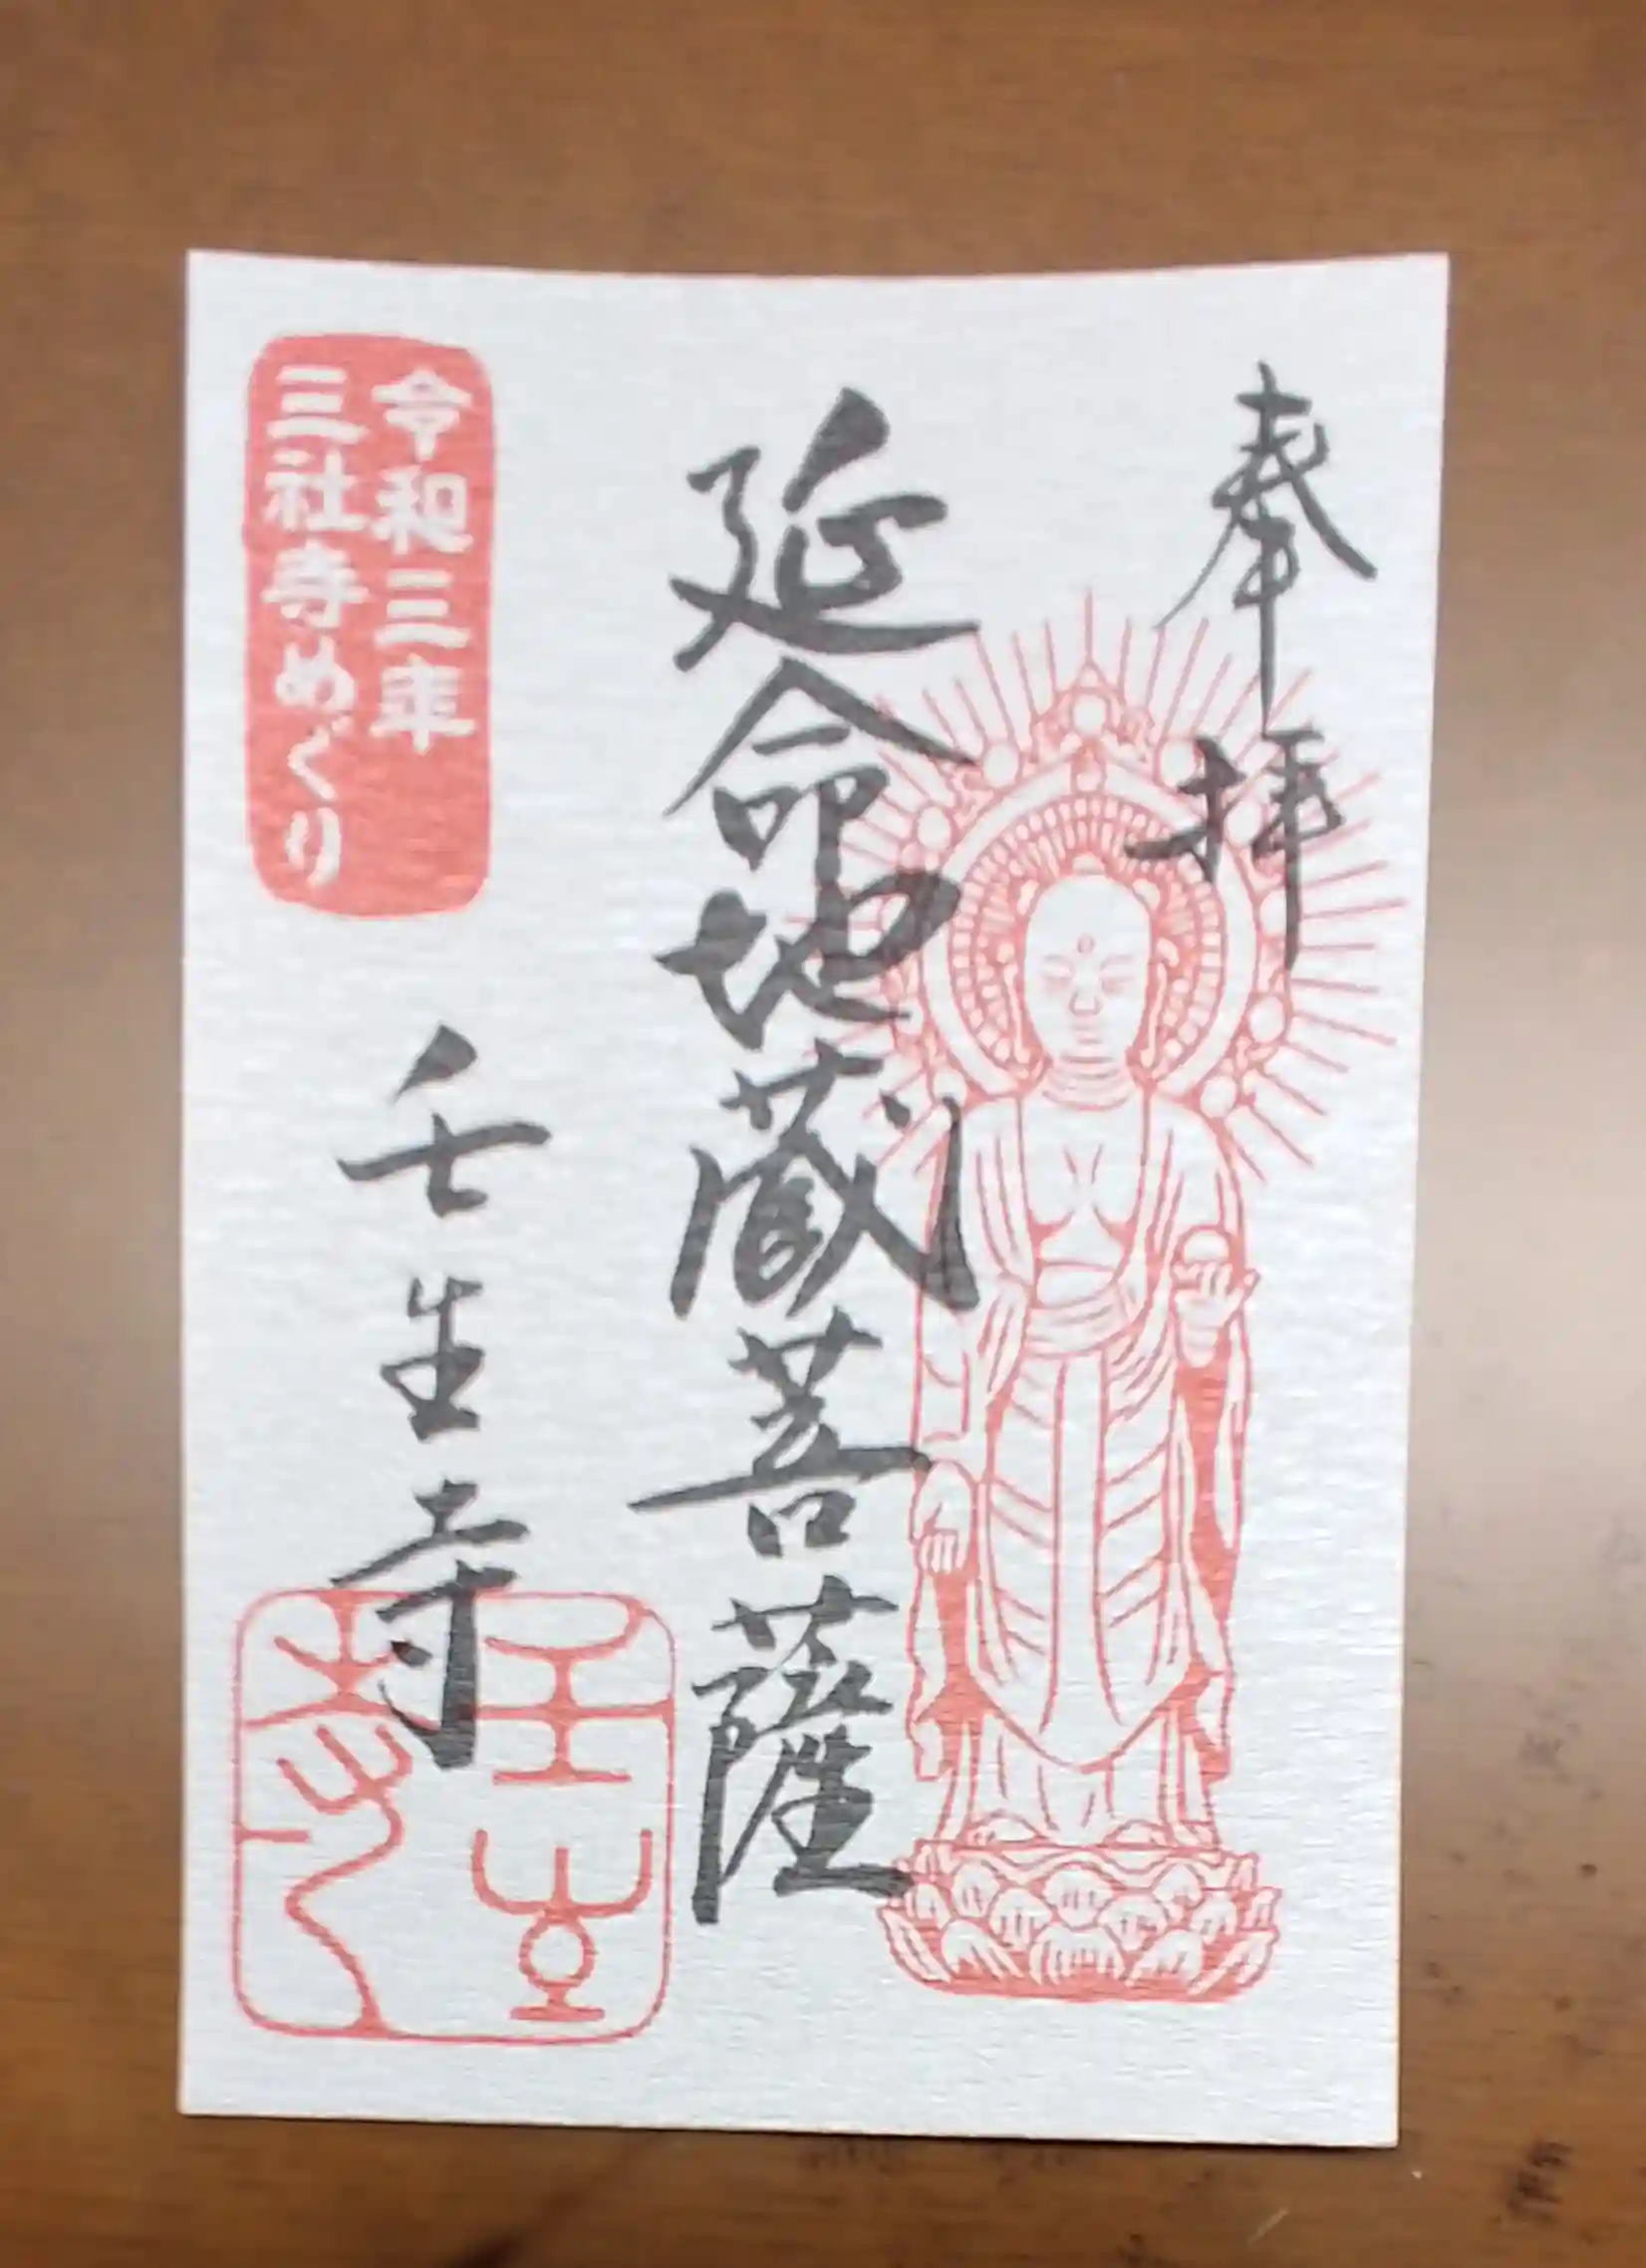 奉拝
延命地蔵菩薩
令和三年
三社寺めぐり
壬生寺